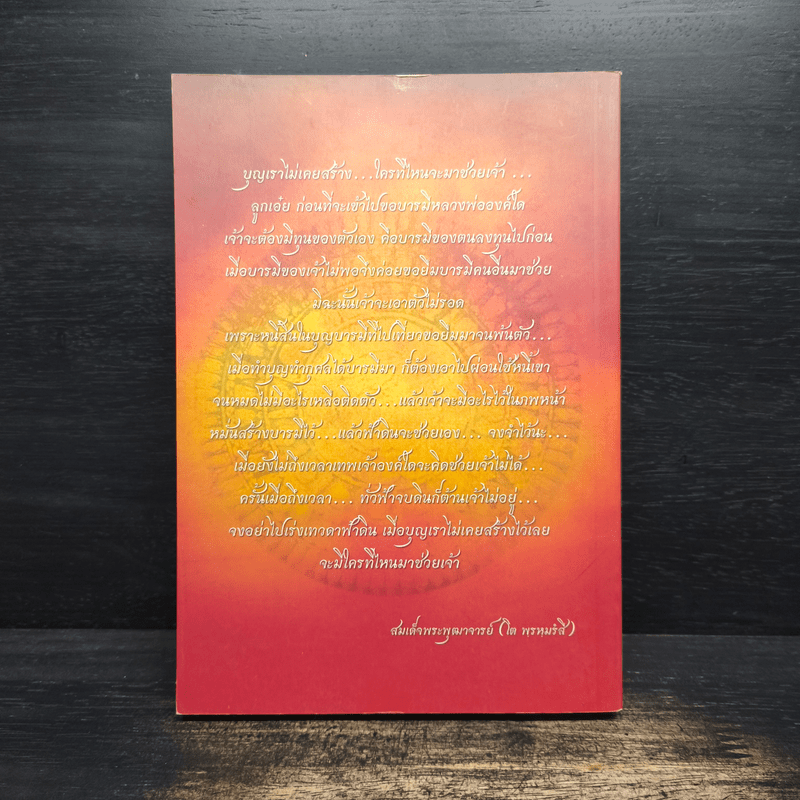 บุญเราไม่เคยสร้าง...ใครที่ไหนจะมาช่วยเจ้า ...
ลูกเอ๋ย ก่อนที่จะเข้าไปขอบารมีหลวงพ่อองค์ใด
เจ้าจะต้องมีทุนของตัวเอง คือบารมีของตนลงทุนไปก่อน
เมื่อบารมีของเจ้าไม่พอจึงค่อยขอยืมบารมีคนอื่นมาช่วย
มิฉะนั้นเจ้าจะเอาตัวไม่รอด
เพราะหนี้สินในบุญบารมีที่ไปเที่ยวขอยืมมาจนพ้นตัว...
เมื่อทำบุญทำกุศลได้บารมีมา ก็ต้องเอาไปผ่อนใช้หนี้เขา
จนหมดไม่มีอะไรเหลือติดตัว...แล้วเจ้าจะมีอะไรไว้ในภพหน้า
หมั่นสร้างบารมีไว้...แล้วฟ้าดินจะช่วยเอง... จงจำไว้นะ...
เมื่อยังไม่ถึงเวลาเทพเจ้าองค์ใดจะคิดช่วยเจ้าไม่ได้...
ครั้นเมื่อถึงเวลา... ทั่วฟ้าจบดินก็ต้านเจ้าไม่อยู่...
จงอย่าไปเร่งเทวดาฟ้าดิน เมื่อบุญเราไม่เคยสร้างไว้เลย
จะมีใครที่ไหนมาช่วยเจ้า
สมเด็จพระพุฒาจารย์ (โต พรหมรังสี)